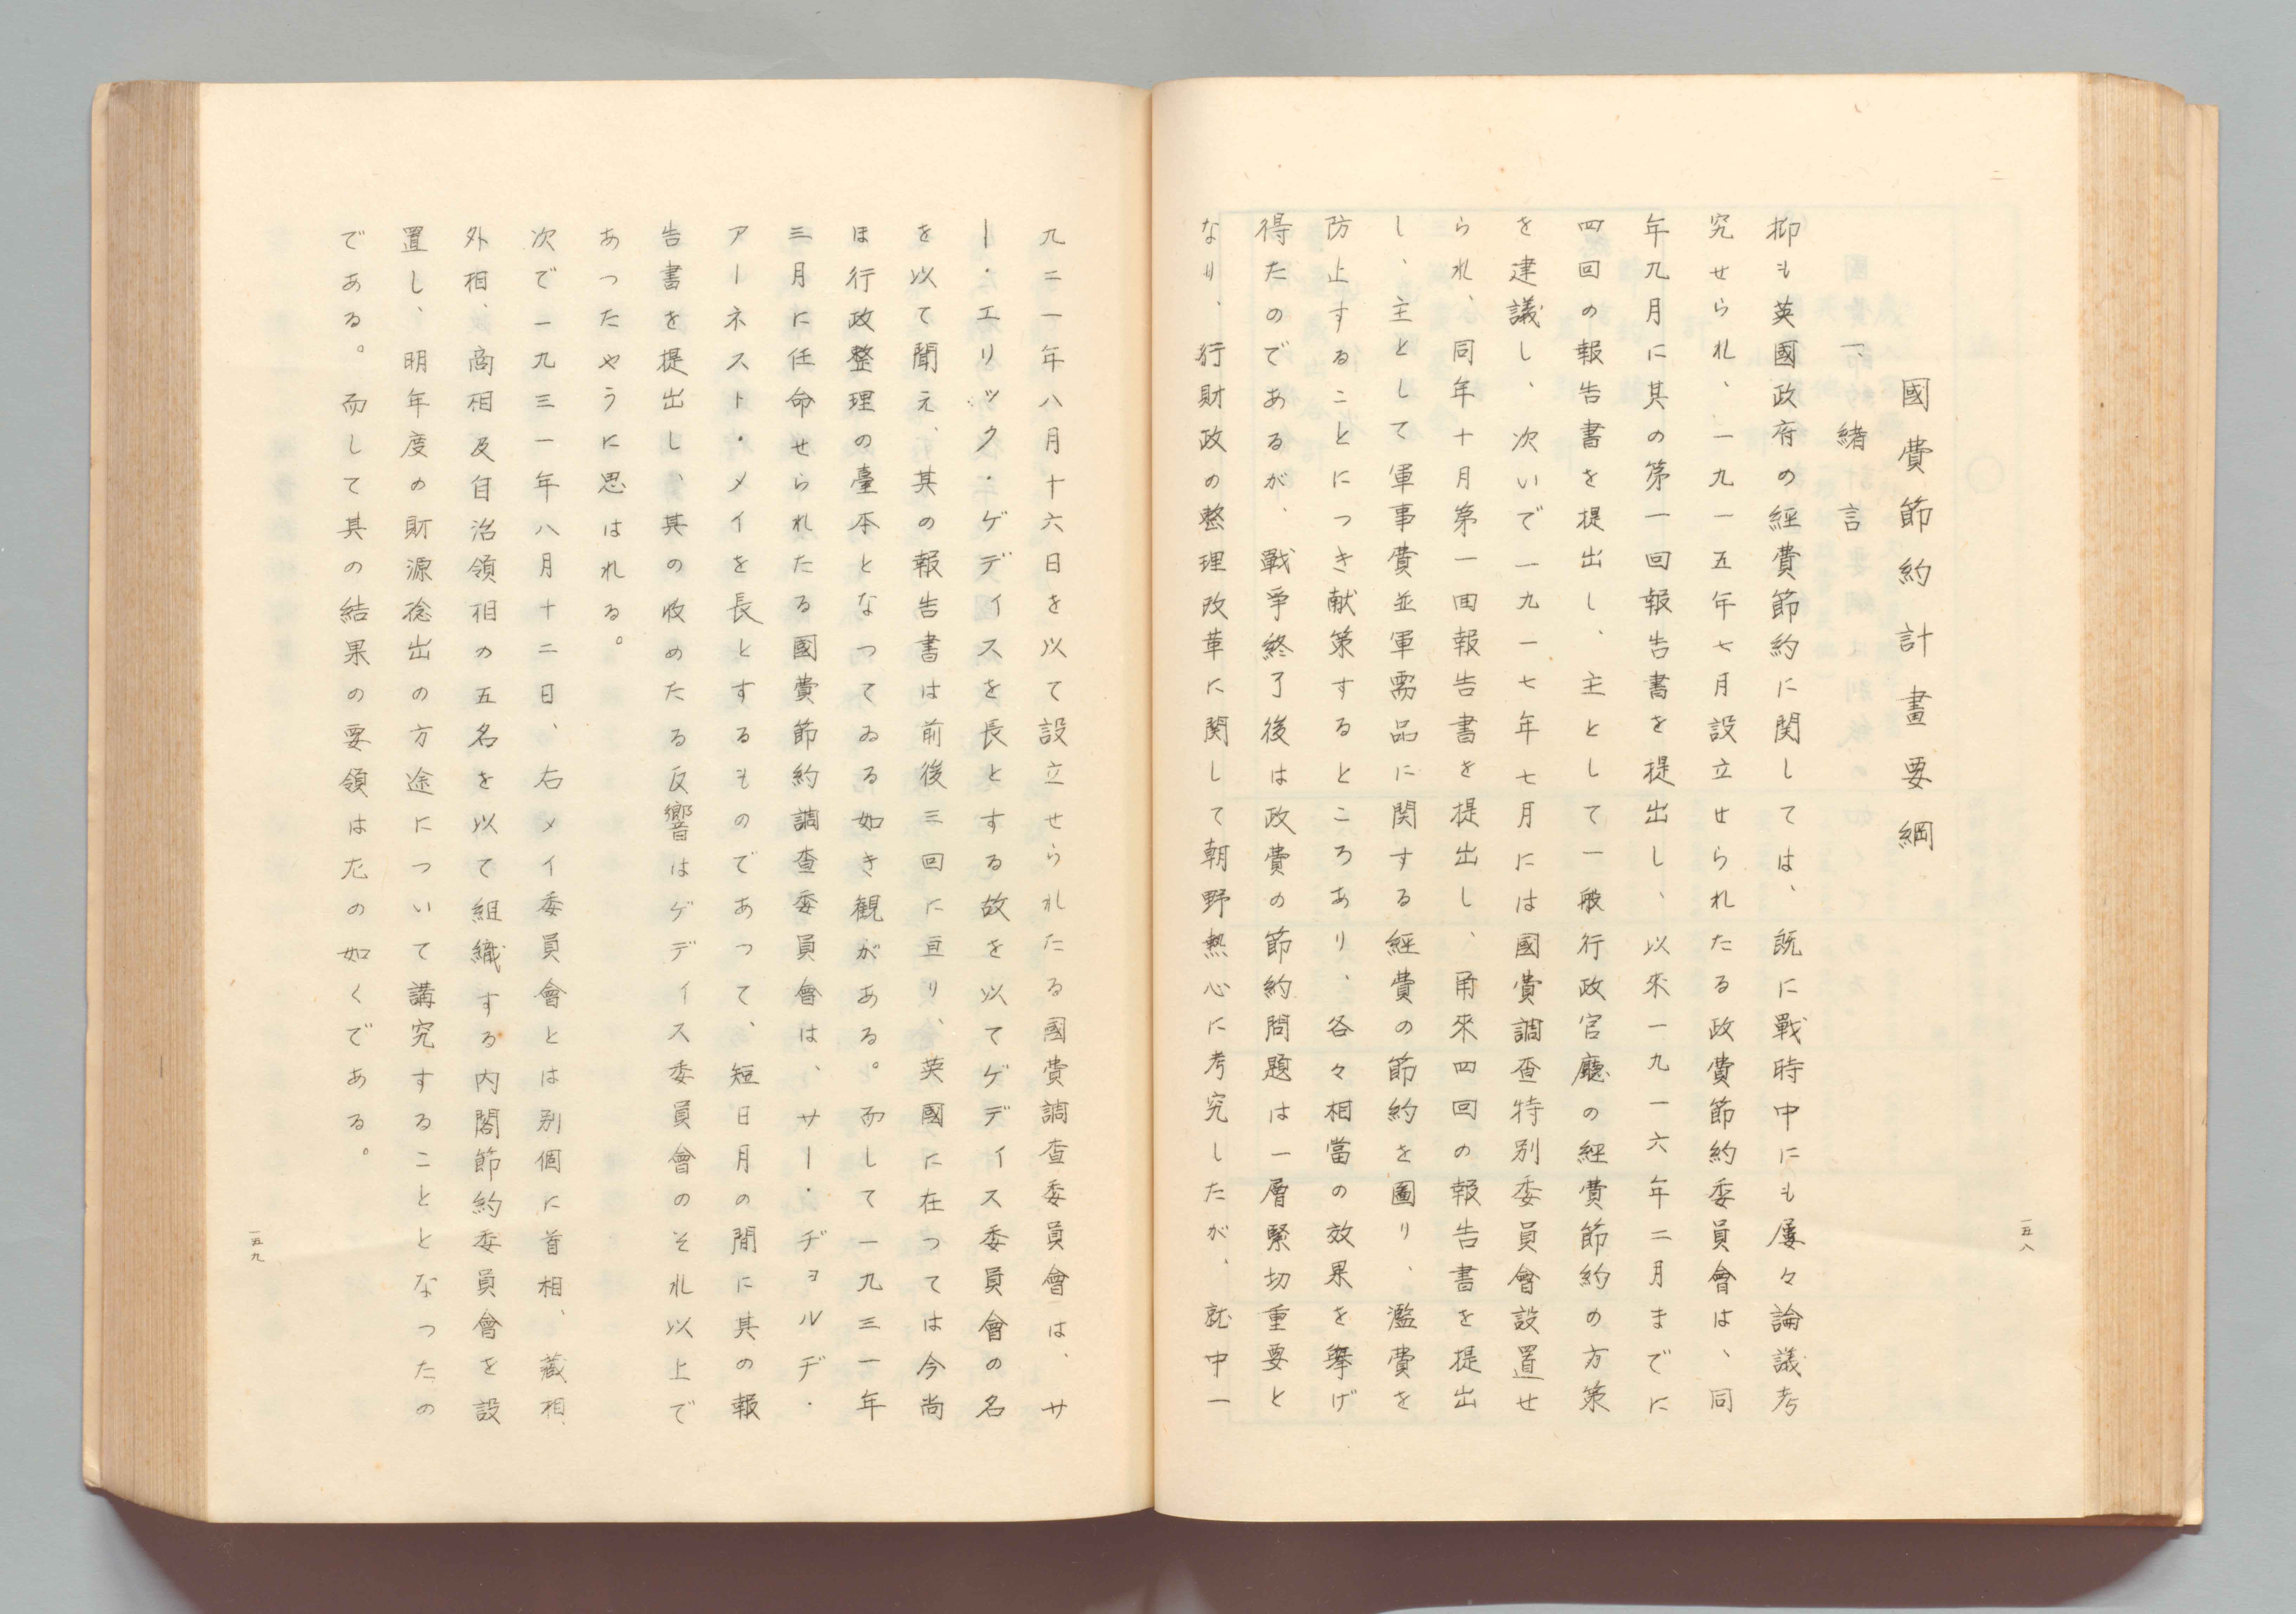 國費節約計畫要綱
一、緒言
抑も英國政府の經費節約に関しては、既に戰時中にも屢々論議考
究せられ、一九一五年七月設立せられたる政費節約委員會は、同
年九月に其の第一回報告書を提出し、以來一九一六年二月までに
四回の報告書を提出し、主として一般行政官廳の経費節約の方策
を建議し、次いで一九一七年七月には國費調査特別委員會設置せ
られ、同年十月第一回報告書を提出し、甬來四回の報告書を提出
し、主として軍事費並軍需品に関する經費の節約を圖り、濫費を
防止することにつき献策するところあり、各々相當の效果を擧げ
得たのであるが、戰爭終了後は政費の節約問題は一層緊切重要と
なり、行財政の整理改革に関して朝野熱心に考究したが、就中一
一五八
九二一年八月十六日を以て設立せられたる國費調査委員會は、サ
ー・エリック・ゲデイスを長とする故を以てゲデイス委員會の名
を以て聞え、其の報告書は前後三回に亘り、英國に在つては今尚
ほ行政整理の臺本となつてゐる如き観がある。而して一九三一年
三月に任命せられたる國費節約調査委員會は、サー・ヂヨルヂ・
アーネスト・メイを長とするものであつて、短日月の間に其の報
告書を提出し、其の收めたる反響はゲデイス委員會のそれ以上で
あつたやうに思はれる。
次で一九三一年八月十二日、右メイ委員會とは別個に首相、藏相、
外相、商相及自治領相の五名を以て組織する内閣節約委員會を設
置し、明年度の財源捻出の方途について講究することとなつたの
である。而して其の結果の要領は尢の如くである。
一五九